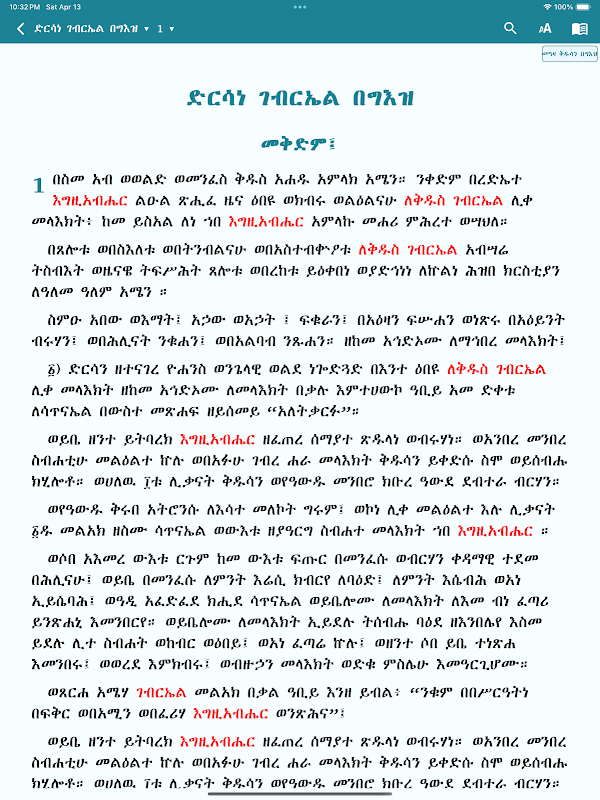 10:32 PM Sat Apr 13
100%
ድርሳነ ገብርኤል በግእዝ 1
AA
መዓዛ ቅዱሳን በግእዝ
ድርሳነ ገብርኤል በግእዝ
መቅድም፤
1 በስመ አብ ወወልድ ወመንፈስ ቅዱስ አሐዱ አምላክ አሜን። ንቀድም በረድኤተ
እግዚአብሔር ልዑል ጽሒፈ ዜና ዕበዩ ወክብሩ ወልዕልናሁ ለቅዱስ ገብርኤል ሊቀ
መላእክት፥ ከመ ይስአል ለነ ኀበ እግዚአብሔር አምላኩ መሐሪ ምሕረተ ወሣህለ።
በጸሎቱ ወበስእለቱ ወበትንብልናሁ ወበአስተብቍዖቱ ለቅዱስ ገብርኤል አብሣሬ
ትስብእት ወዜናዌ ትፍሥሕት ጸሎቱ ወበረከቱ ይዕቀበነ ወያድኅነነ ለኵልነ ሕዝበ ክርስቲያን
ለዓለመ ዓለም አሜን ።
ስምዑ አበው ወእማት፤ አኃው ወአኃት ፤ ፍቁራን፤ በእዘን ፍሡሐን ወነጽሩ በአዕይንት
ብሩሃን፤ ወበሕሊናት ንቁሐን፤ ወበአልባብ ንጹሐን። ዘከመ አኅድኦሙ ለማኅበረ መላእክት፤
፩) ድርሳን ዘተናገረ ዮሐንስ ወንጌላዊ ወልደ ነጐድጓድ በእንተ ዕበዩ ለቅዱስ ገብርኤል
ሊቀ መላእክት ዘከመ አኅድኦሙ ለመላእክት በቃሉ እምተሀውኮ ዓቢይ አመ ድቀቱ
ለሳጥናኤል በውስተ መጽሐፍ ዘይሰመይ “አለትቃርፉ”።
ወይቤ ዘንተ ይትባረክ እግዚአብሔር ዘፈጠረ ሰማያተ ጽዱላነ ወብሩሃነ። ወአንበረ መንበረ
ስብሐቲሁ መልዕልተ ኵሉ ወበአፉሁ ገብረ ሐራ መላእክት ቅዱሳን ይቀድሱ ስሞ ወይሴብሑ
ክሂሎቶ። ወሀለዉ ፲ቱ ሊቃናት ቅዱሳን ወየዓውዱ መንበሮ ክቡረ ዓውደ ደብተራ ብርሃን።
ወየዓውዱ ቅሩበ አትሮንሱ ለእሳተ መለኮት ግሩም፤ ወኮነ ሊቀ መልዕልተ እሉ ሊቃናት
፩ዱ መልአክ ዘስሙ ሳጥናኤል ወውእቱ ዘያዓርግ ስብሐተ መላእክት ኀበ እግዚአብሔር ።
ወሶበ አእመረ ውእቱ ርጉም ከመ ውእቱ ፍጡር በመንፈሱ ወብርሃን ቀዳማዊ ተደመ
በሕሊናሁ፤ ወይቤ በመንፈሱ ለምንት እሬሲ ክብርየ ለባዕድ፤ ለምንት እሴብሕ ወአነ
ኢይሴባሕ፤ ወዓዲ አፈድፈደ ክሒደ ሳጥናኤል ወይቤሎሙ ለመላእክት ለእመ ብነ ፈጣሪ
ይንጽሐኒ እመንበርየ። ወይቤሎሙ ለመላእክት ኢይደሉ ትሰብሑ ባዕደ ዘእንበሌየ እስመ
ይደሉ ሊተ ስብሐት ወክብር ወዕበይ፤ ወአነ ፈጣሬ ኵሉ፤ ወዘንተ ሶበ ይቤ ተነጽሐ
እመንበሩ፤ ወወረደ እምክብሩ፤ ወብዙኃን መላእክት ወድቁ ምስሌሁ እመዓርጊሆሙ።
ወጸርሐ አሜሃ ገብርኤል መልአክ በቃል ዓቢይ እንዘ ይብል፥ “ንቁም በበሥርዓትነ
በፍቅር ወበአሚን ወበፈሪሃ እግዚአብሔር ወንጽሕና”፤
ወይቤ ዘንተ ይትባረክ እግዚአብሔር ዘፈጠረ ሰማያተ ጽዱላነ ወብሩሃነ። ወአንበረ መንበረ
ስብሐቲሁ መልዕልተ ኵሉ ወበአፉሁ ገብረ ሐራ መላእክት ቅዱሳን ይቀድሱ ስሞ ወይሴብሑ
ክሂሎቶ። ወሀለዉ ፲ቱ ሊቃናት ቅዱሳን ወየዓውዱ መንበሮ ክቡረ ዓውደ ደብተራ ብርሃን።